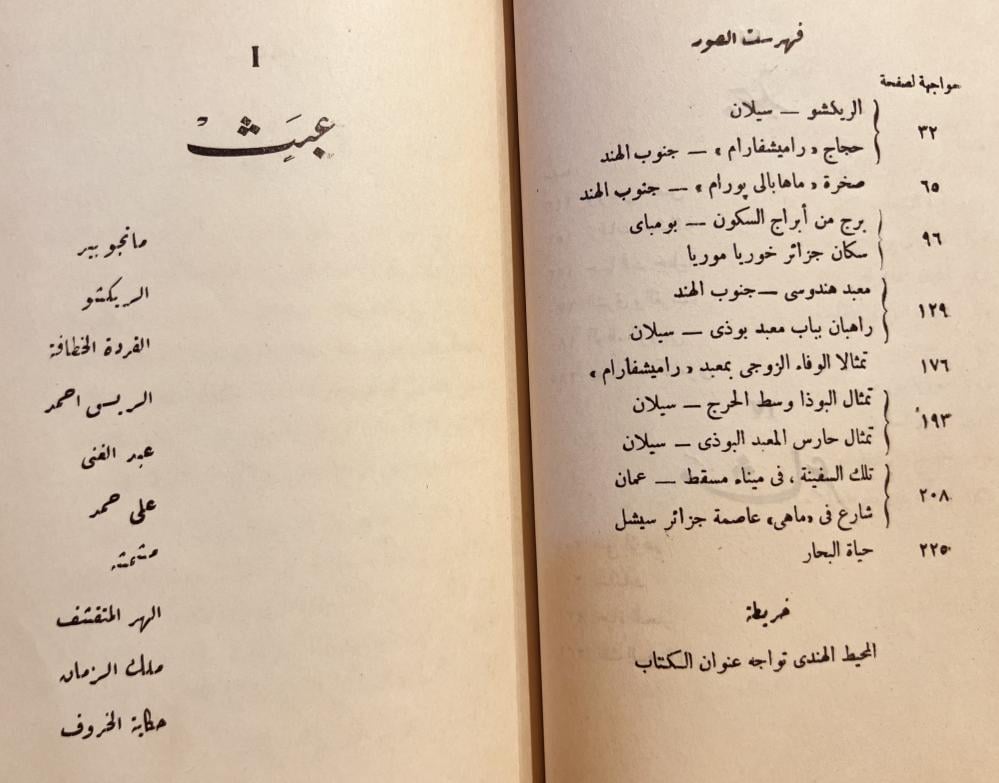 فهرست الصور
مواجهة لصفحة
الريكشو — سيلان
٣٢
حجاج «راميشفارام» — جنوب الهند
صخرة «ماهابالى پورام» — جنوب الهند ٦٥
برج من أبراج السكون — بومباى
٩٦
سكان جزائر خوريا موريا
معبد هندوسى — جنوب الهند
١٢٩
راهبان بباب معبد بوذى — سيلان
تمثالا الوفاء الزوجى بمعبد «راميشفارام» ١٧٦
تمثال البوذا وسط الحرج — سيلان
١٩٣
تمثال حارس المعبد البوذى — سيلان
تلك السفينة ، فى ميناء مسقط — عمان
٢٠٨
شارع فى «ماهى» عاصمة جزائر سيشل
حياة البحار ٢٢٥
خريطة
المحيط الهندى تواجه عنوان الكتاب
I
عبث
مانجو بير
الريكشو
القردة الخطافة
الريس احمد
عبد الغنى
على حمد
مشمشه
الهر المتقشف
ملك الزمان
حكاية الخروف